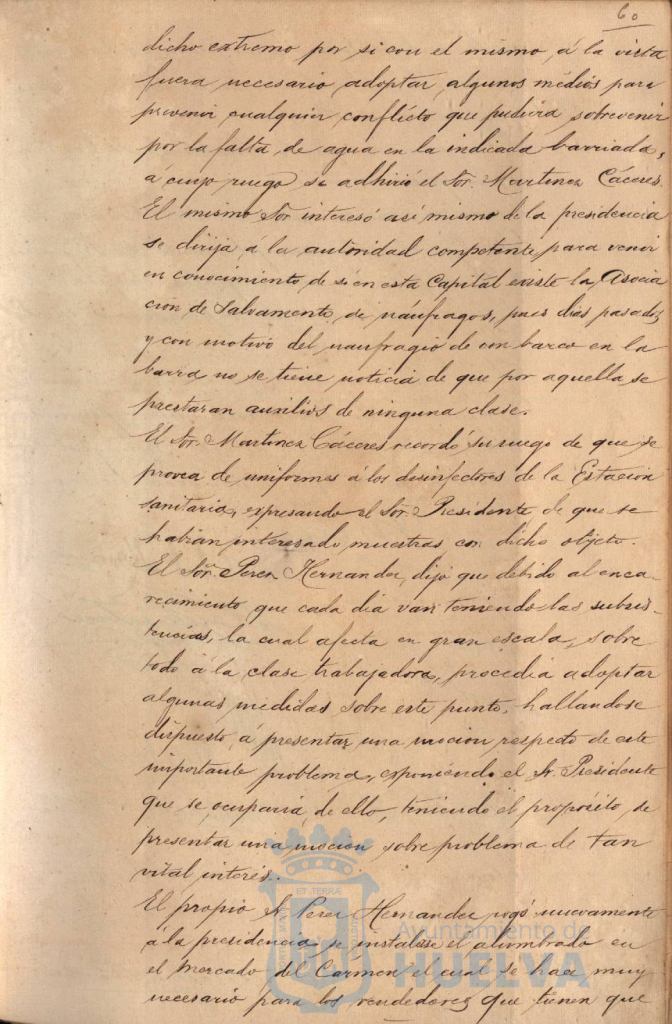 60
dicho extremo por si con el mismo, á la vista
fuera necesario adoptar algunos médios para
prevenir cualquier conflicto que pudiera sobrevenir
por la falta de agua en la indicada barriada,
á cuyo ruego se adhirió el Sor. Martinez Cáceres.
El mismo Sor interesó asi mismo de la presidencia
se dirija á la autoridad competente para venir
en conocimiento de si en esta Capital existe la Asocia
ción de Salvamento de náufragos, pues dias pasados
y con motivo del naufragio de un barco en la
barra no se tiene noticia de que por aquella se
prestaran auxilios de ninguna clase.
El Sor. Martinez Cáceres recordó su ruego de que se
provea de uniformes á los desinfectores de la Estación
sanitaria, expresando el Sor. Presidente de que se
habian interesado muestras con dicho objeto.
El Sor. Perez Hernandez, dijo que debido al enca-
recimiento que cada dia van teniendo las subsis-
tencias, la cual afecta en gran escala, sobre
todo á la clase trabajadora, procedia adoptar
algunas medidas sobre este punto, hallandose
dispuesto á presentar una mocion respecto de este
importante problema, exponiendo el Sr. Presidente
que se ocuparia de ello, teniendo el propósito de
presentar una mocion sobre problema de tan
vital interés.
El propio Sr. Perez Hernandez rogó nuevamente
á la presidencia se instalase el alumbrado en
el Mercado del Cármen el cual se hace muy
necesario para los vendedores que tienen que
ET TERRÆ
Ayuntamiento de
HUELVA